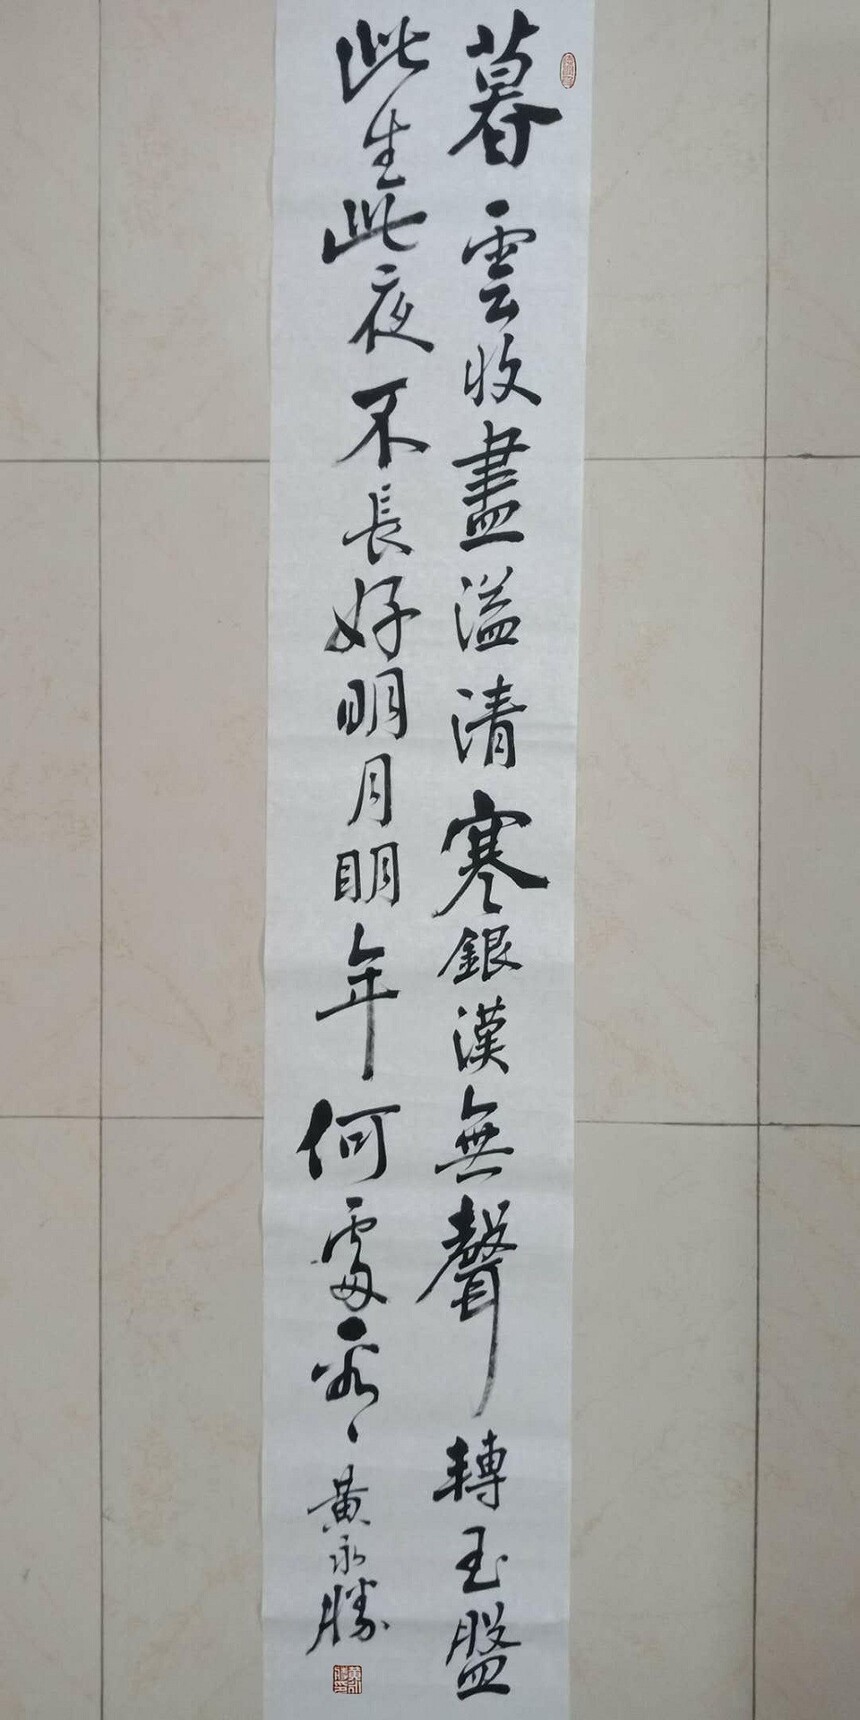 暮雲收盡溢清寒銀漢無聲轉玉盤
此生此夜不長好明月明年何處看
黃永勝